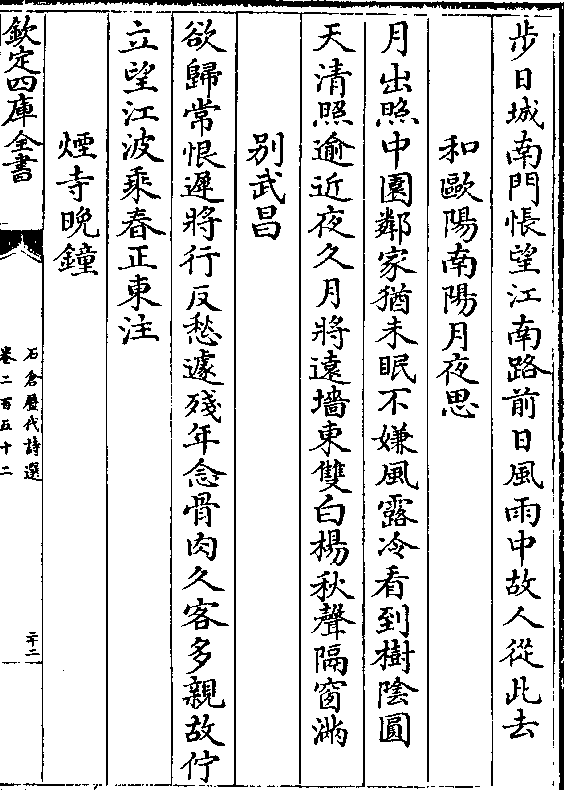 步日城南門悵望江南路前日風雨中故人從此去
和歐陽南陽月夜思
月出照中園鄰家猶未眠不嫌風露冷看到樹陰圓
天清照逾近夜久月將遠墻東雙白楊秋聲隔窗滿
别武昌
欲歸常恨遲將行反愁遽殘年念骨肉久客多親故佇
立望江波乘春正東注
煙寺晚鐘
欽定四庫全書
石倉歷代詩選
卷二百五十二
二十二